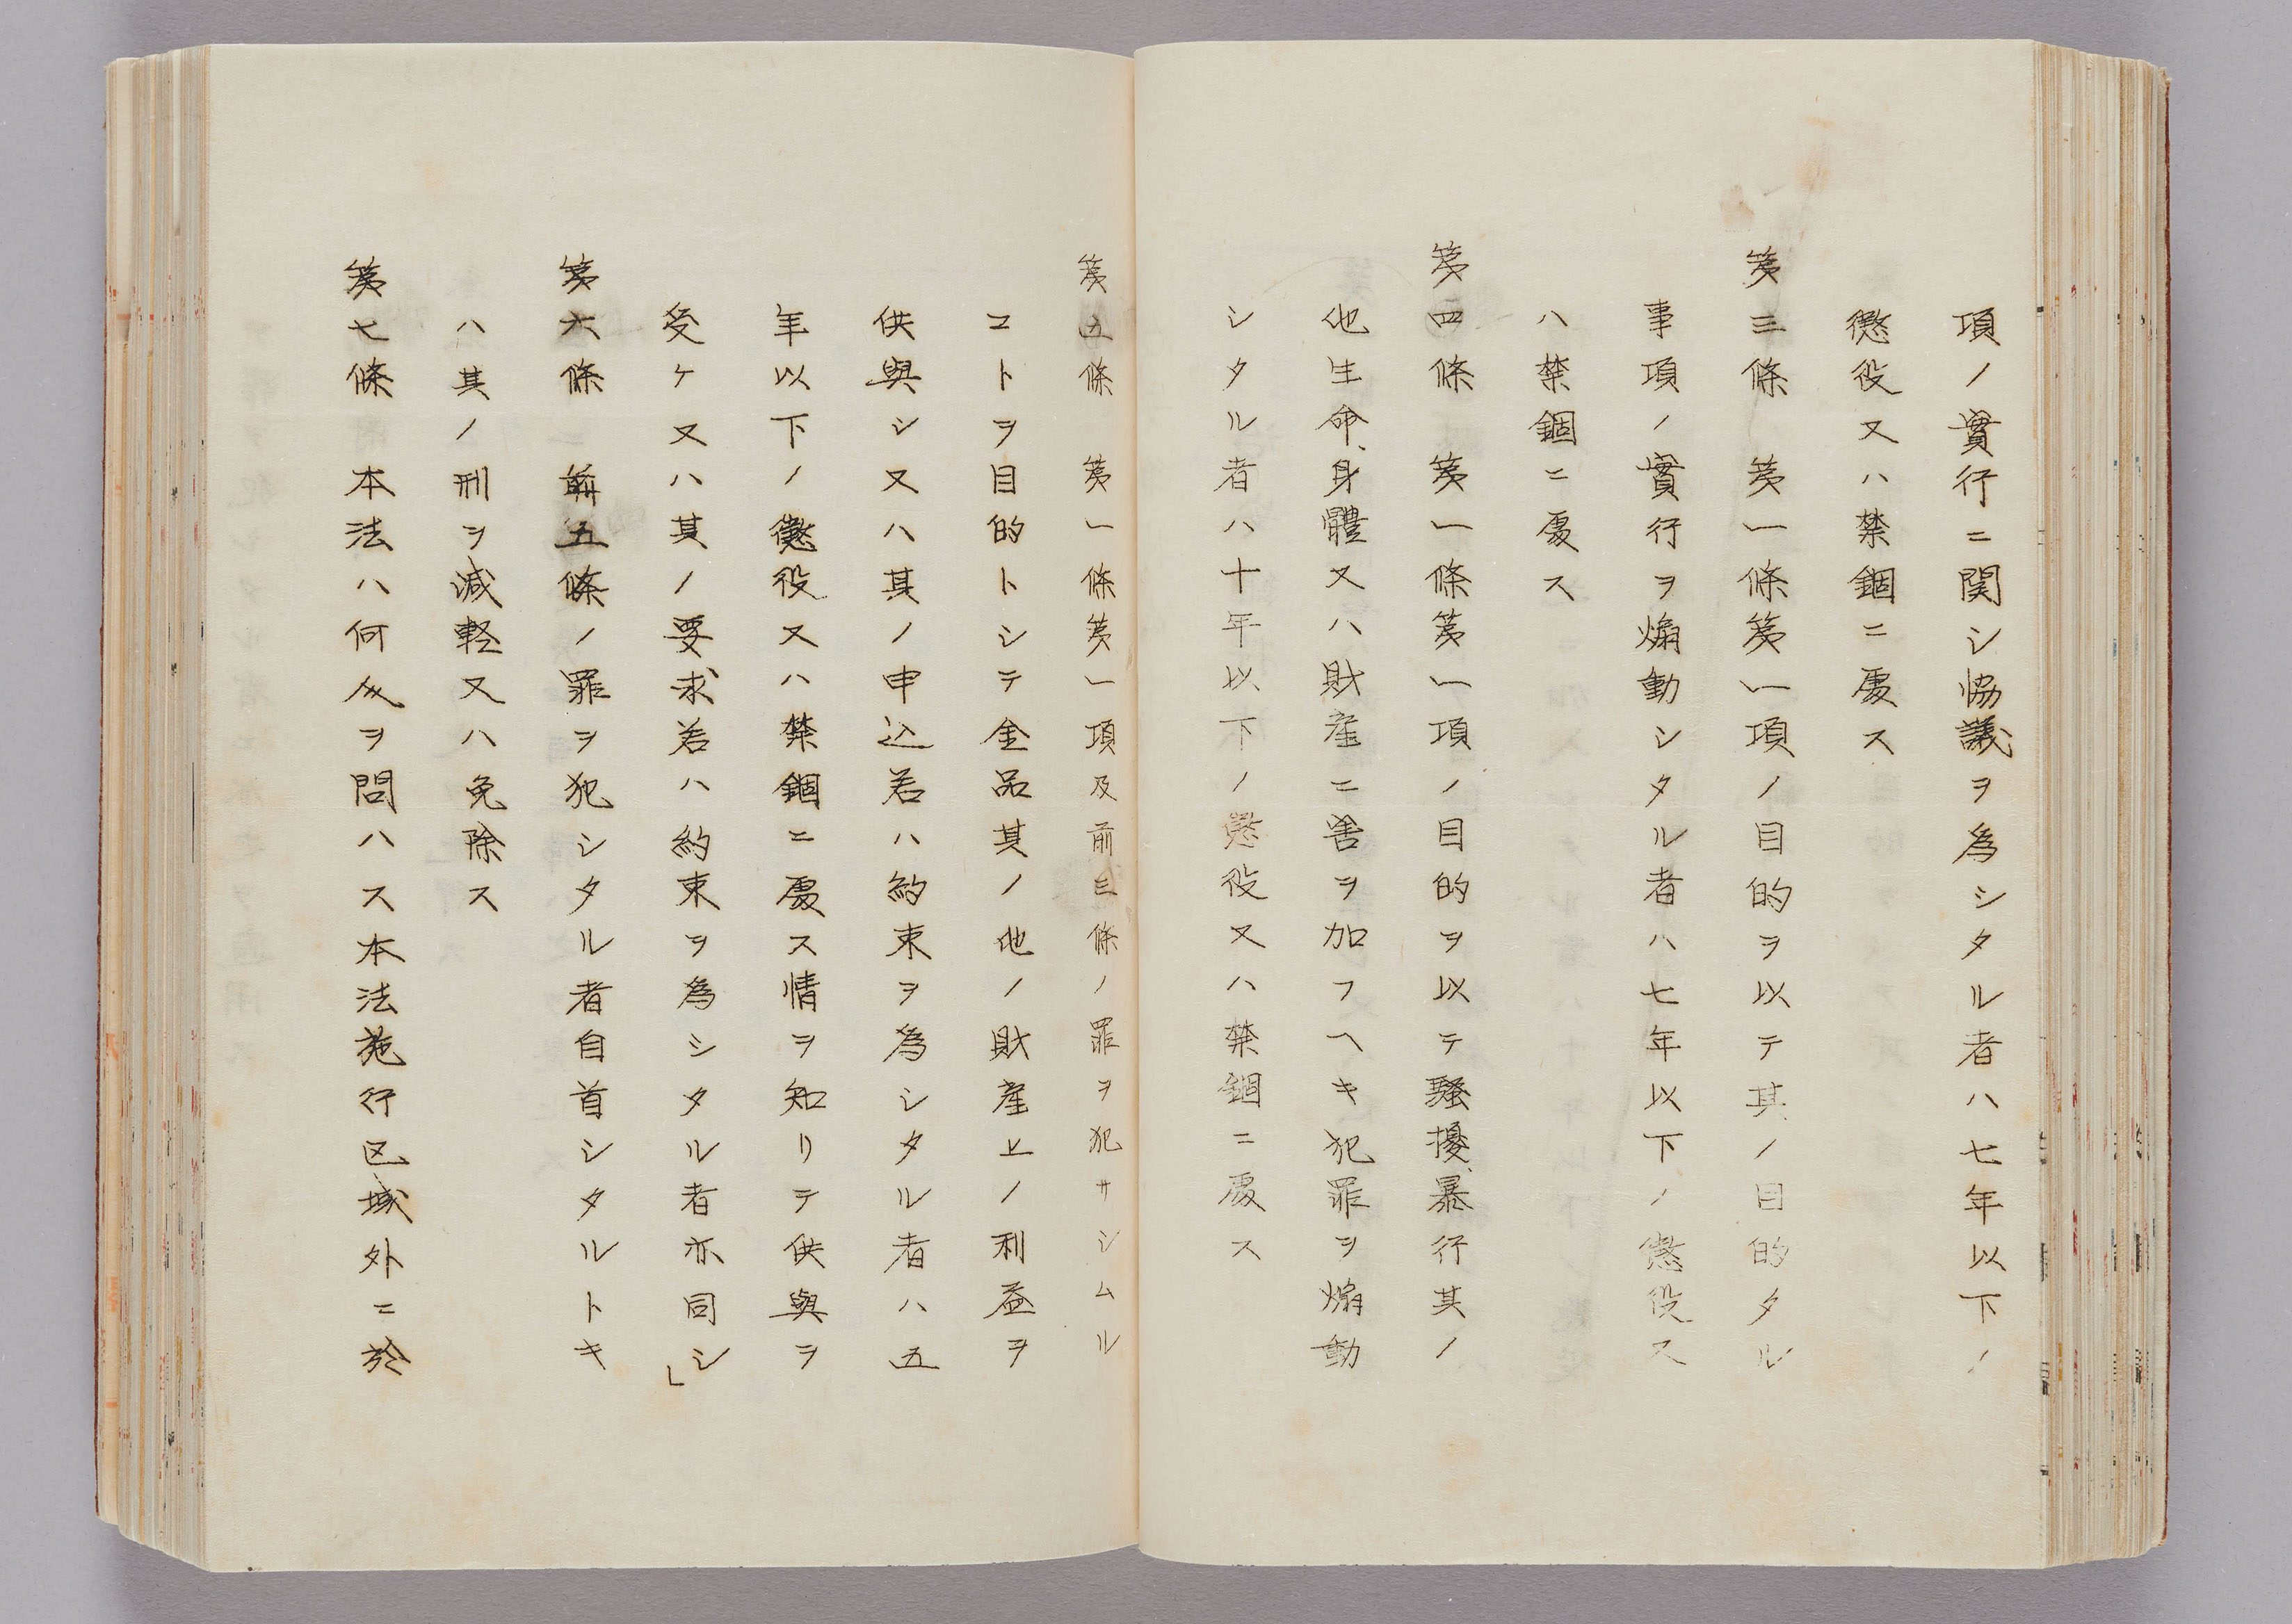 項ノ實行ニ関シ協議ヲ為シタル者ハ七年以下ノ
懲役又ハ禁錮ニ處ス
第三條　第一條第一項ノ目的ヲ以テ其ノ目的タル
事項ノ實行ヲ煽動シタル者ハ七年以下ノ懲役又
ハ禁錮ニ處ス
第四條　第一條第一項ノ目的ヲ以テ騷擾、暴行其ノ
他生命、身體又ハ財産ニ害ヲ加フヘキ犯罪ヲ煽動
シタル者ハ十年以下ノ懲役又ハ禁錮ニ處ス
第五條　第一條第一項及前三條ノ罪ヲ犯サシムル
コトヲ目的トシテ金品其ノ他ノ財産上ノ利益ヲ
供與シ又ハ其ノ申込若ハ約束ヲ為シタル者ハ五
年以下ノ懲役又ハ禁錮ニ處ス情ヲ知リテ供與ヲ
受ケ又ハ其ノ要求若ハ約束ヲ為シタル者亦同シ」
第六條　前五條ノ罪ヲ犯シタル者自首シタルトキ
ハ其ノ刑ヲ減軽又ハ免除ス
第七條　本法ハ何人ヲ問ハス本法施行区域外ニ於